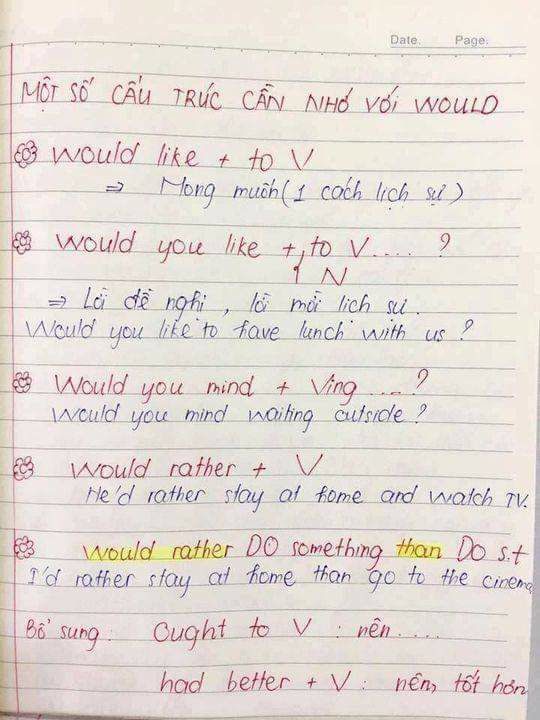 Date. Page.
MỘT SỐ CẤU TRÚC CẦN NHỚ VỚI WOULD
Would like + to V
⇒ Mong muốn (1 cách lịch sự)
Would you like + to V.... ?
N
⇒ Lời đề nghị, lời mời lịch sự.
Would you like to have lunch with us ?
Would you mind + Ving ....?
Would you mind waiting outside ?
Would rather + V
He'd rather stay at home and watch TV.
Would rather DO something than DO s.t
I'd rather stay at home than go to the cinema
Bổ sung : Ought to V : nên....
had better + V : nên tốt hơn